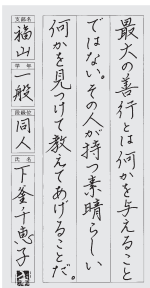 最大の善行とは何かを与えること
ではない。その人が持つ素晴らしい
何かを見つけて教えてあげることだ。
支部名
福山
学年
一般
段級位
同人
氏名
下釜千恵子